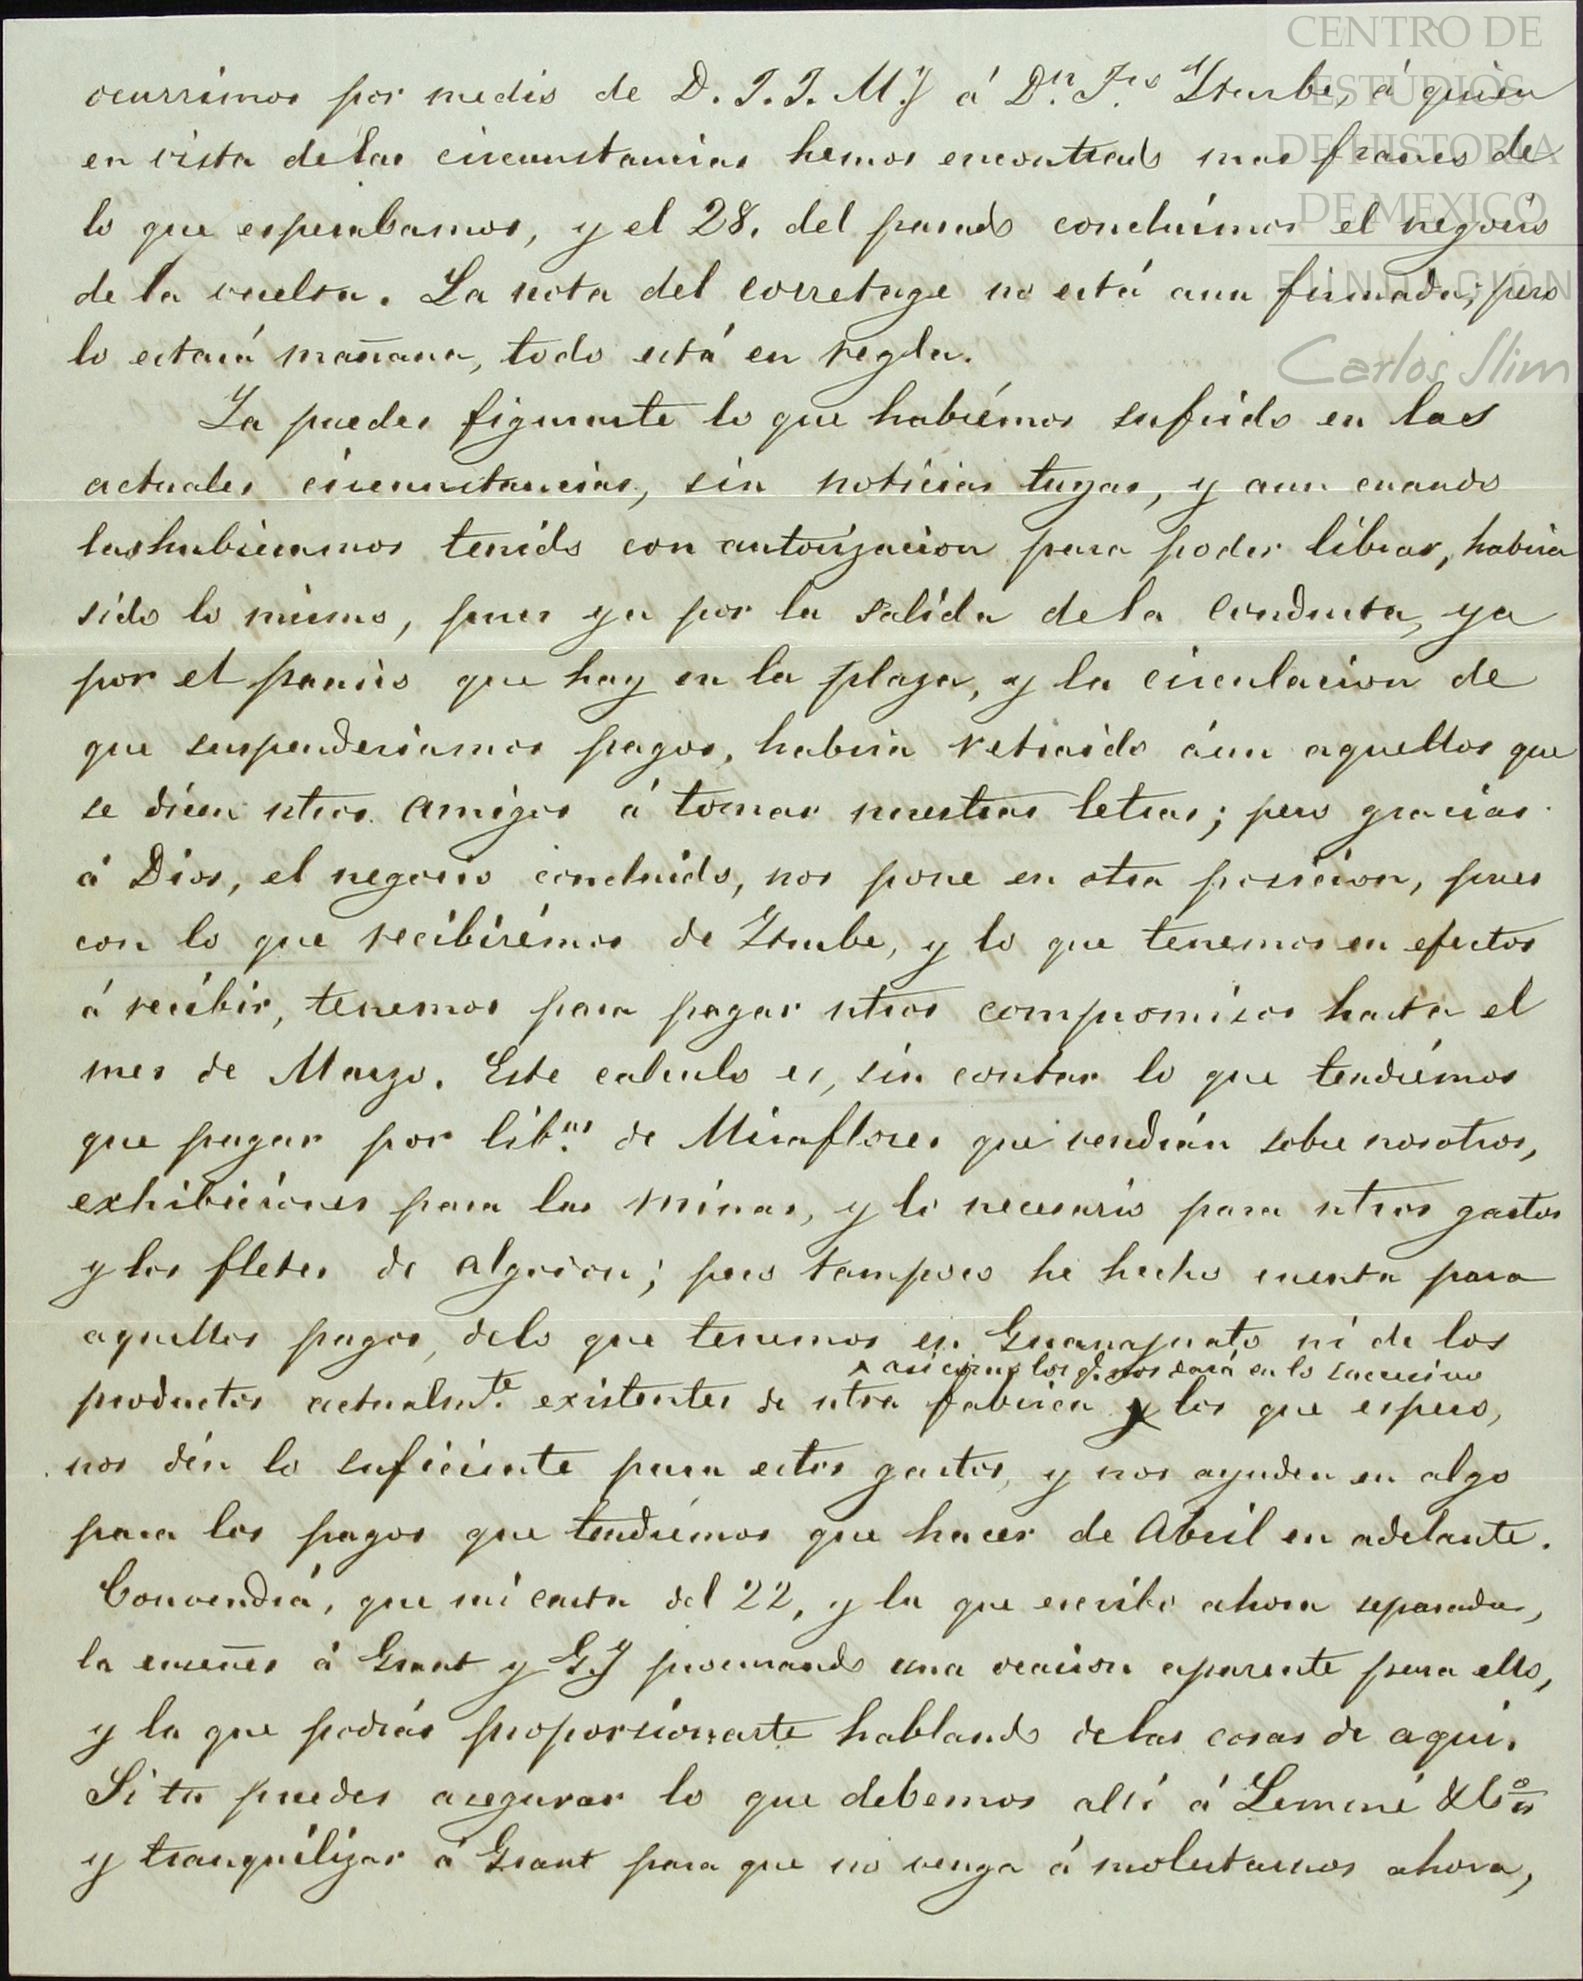 CENTRO DE
ESTUDIOS
DE HISTORIA
DE MEXICO
FUNDACIÓN
Carlos Slim
ocurrimos por medio de D. J. J. M.y á Dn. Frco Yturbe, á quien
en vista delas circunstancias hemos encontrado mas franco de
lo que esperabamos, y el 28. del pasado concluímos el negocio
de la vuelta. La nota del corretage no está aun firmada; pero
lo estará mañana, todo está en regla.
Ya puedes figurarte lo que habrémos sufrido en las
actuales circunstancias, sin noticias tuyas, y aun cuando
las hubieramos tenido con autorizacion para poder librar, habria
sido lo mismo, pues ya por la salida dela conducta, ya
por el panico que hay en la plaza, y la circulacion de
que suspenderiamos pagos, habria retraido áun aquellos que
se dicen ntros. amigos á tomar nuestras letras; pero gracias
á Dios, el negocio concluido, nos pone en otra posicion, pues
con lo que recibirémos de Yturbe, y lo que tenemos en efectos
á recibir, tenemos para pagar ntros compromisos hasta el
mes de Marzo. Este calculo es, sin contar lo que tendrémos
que pagar por lib.as de Miraflores que vendrán sobre nosotros,
exhibiciones para las minas, y lo necesario para ntros gastos
y los fletes de algodon; pero tampoco he hecho cuenta para
aquellos pagos, delo que tenemos en Guanajuato ni de los
asi como los q. nos dará en lo sucesivo
productos actualm.te existentes de ntra fabrica y los que espero,
nos dén lo suficiente para estos gastos, y nos ayuden en algo
para los pagos que tendrémos que hacer de Abril en adelante.
Convendrá, que mi carta del 22, y la que escribo ahora separada,
la enseñes á Grant y G.y procurando una ocasion aparente para ello,
y la que podrás proporcionarte hablando delas cosas de aqui.
Si tu puedes asegurar lo que debemos allí á Lemmé
y tranquilizar á Grant para que no venga á molestarnos ahora,